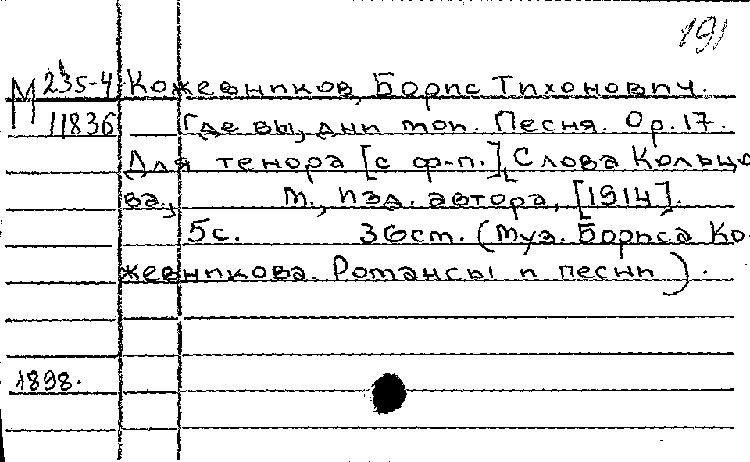 191
М 235-4 Кожевников, Борис Тихонович.
11836 Где вы, дни мои. Песня. Op. 17.
Для тенора [с ф-п.] Слова Кольцо
ва, М., изд. автора, [1914].
5с. 36см. (Муз. Бориса Ко-
жевникова. Романсы и песни).
1898.